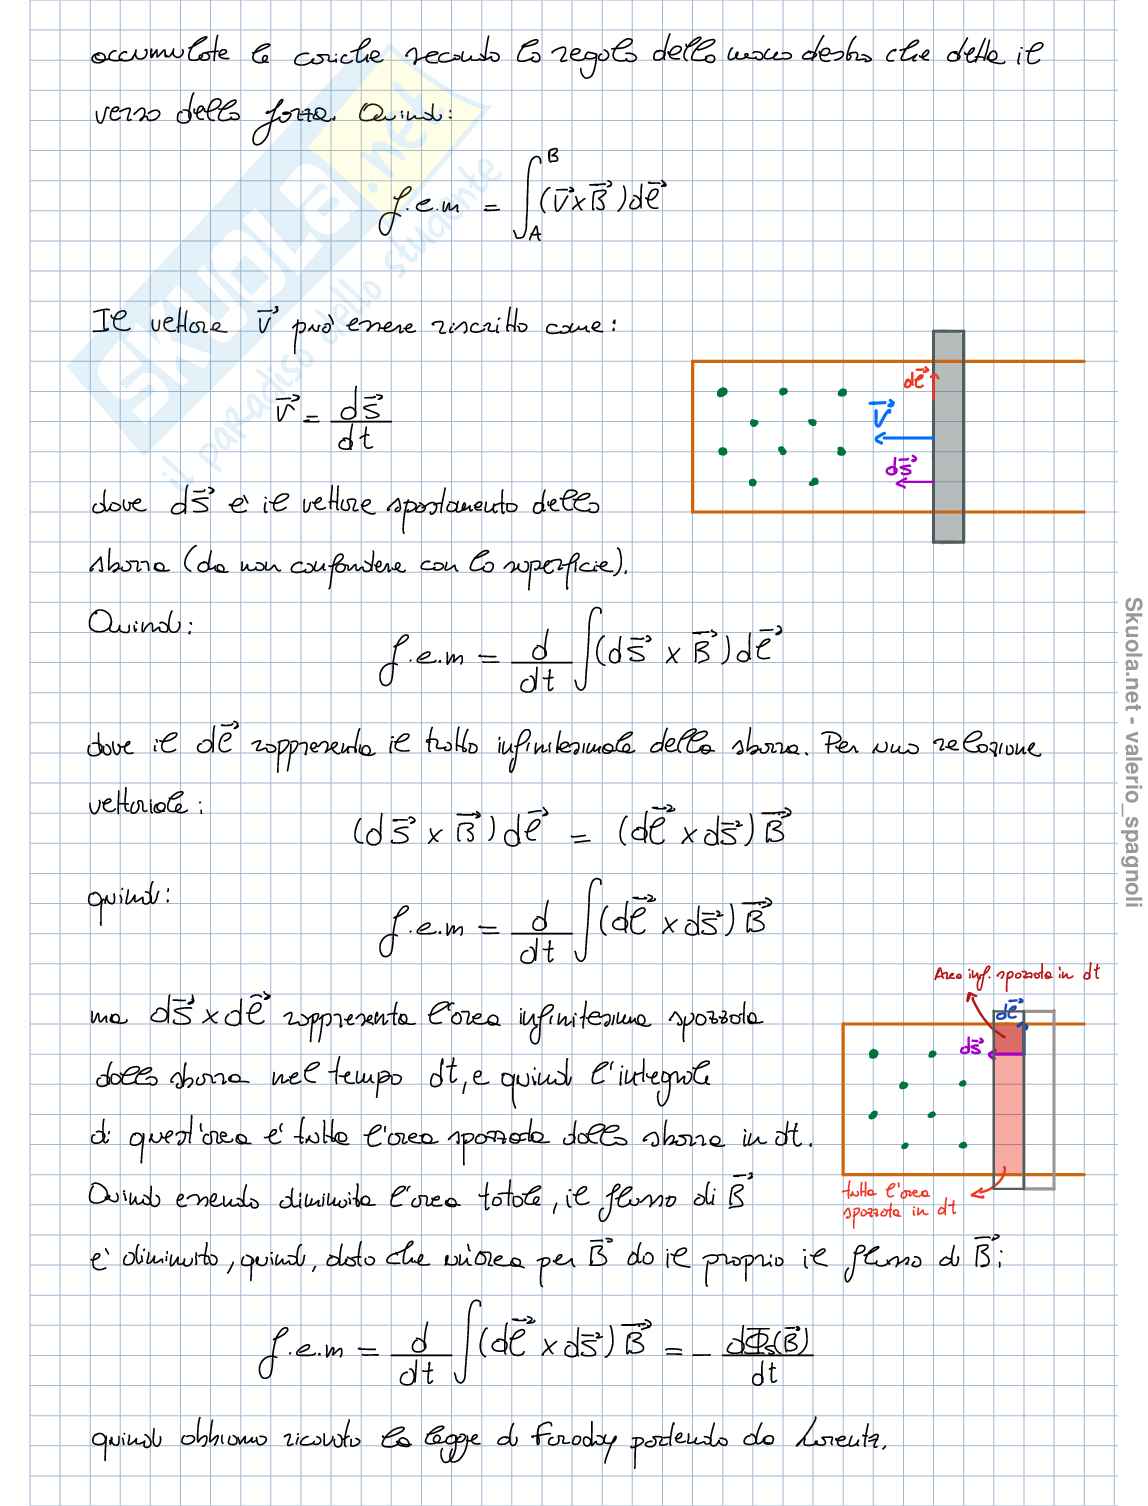 accumulate le cariche secondo la regola della mano destra che detta il
verso della forza. Quindi:
f.e.m = ∫_A^B (v⃗ × B⃗) dℓ⃗
Il vettore v⃗ può essere riscritto come:
v⃗ = ds⃗/dt
dℓ⃗
v⃗
ds⃗
dove ds⃗ è il vettore spostamento della
sbarra (da non confondere con la superficie).
Quindi:
f.e.m = d/dt ∫(ds⃗ × B⃗) dℓ⃗
dove il dℓ⃗ rappresenta il tratto infinitesimale della sbarra. Per una relazione
vettoriale:
(ds⃗ × B⃗) dℓ⃗ = (dℓ⃗ × ds⃗) B⃗
quindi:
f.e.m = d/dt ∫(dℓ⃗ × ds⃗) B⃗
Area inf. spazzata in dt
dℓ⃗
ds⃗
ma ds⃗ × dℓ⃗ rappresenta l'area infinitesima spazzata
dalla sbarra nel tempo dt, e quindi l'integrale
di quest'area è tutta l'area spazzata dalla sbarra in dt.
tutta l'area
spazzata in dt
Quindi essendo diminuita l'area totale, il flusso di B⃗
è diminuito, quindi, dato che un'area per B⃗ da il proprio il flusso di B⃗:
f.e.m = d/dt ∫(dℓ⃗ × ds⃗) B⃗ = - dΦ_s(B⃗)/dt
quindi abbiamo ricavato la legge di Faraday partendo da Lorentz.
SKUOLA.net
il paradiso dello studente
Skuola.net - valerio_spagnoli